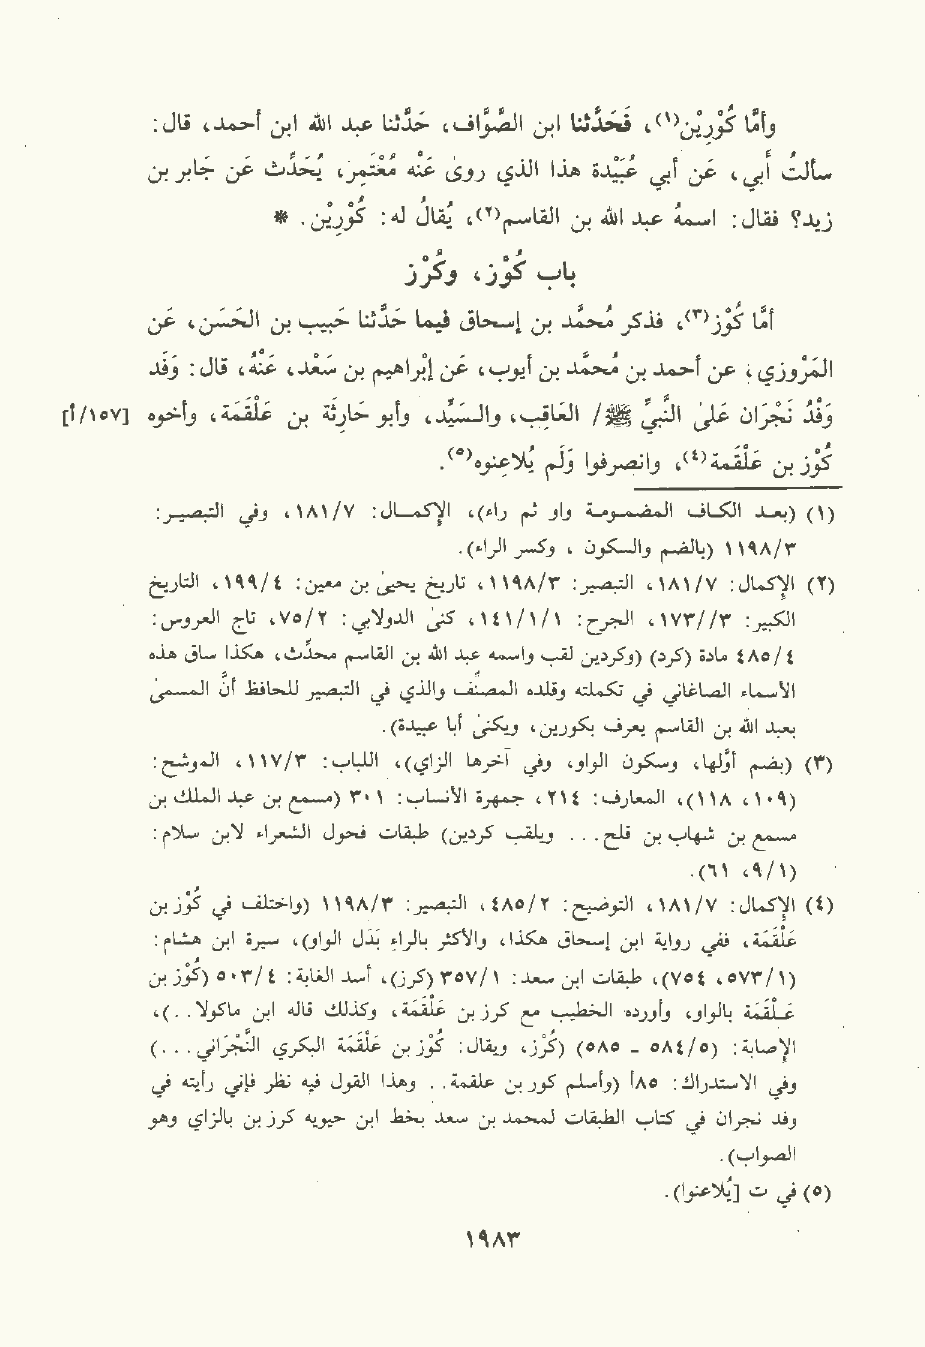 وأَمَّا كُوْرِيْن(١)، فَحَدَّثنا ابن الصَّوَّاف، حَدَّثنا عبد الله ابن أحمد، قال:
سألتُ أبي، عَن أبي عُبَيْدة هذا الذي روى عَنْه مُعْتَمِر، يُحَدِّث عَن جَابر بن
زيد؟ فقال: اسمهُ عبد الله بن القاسم(٢)، يُقالُ له: كُوْرِيْن. *
باب كُوْز، وكُرْز
أمَّا كُوْز(٣)، فذكر مُحمَّد بن إسحاق فيما حَدَّثنا حَبيب بن الحَسَن، عَن
المَرْوزي، عن أحمد بن مُحمَّد بن أيوب، عَن إبْراهيم بن سَعْد، عَنْهُ، قال: وَفَدَ
وَفْدُ نَجْرَان عَلىٰ النَّبيِّ ﷺ/ العَاقِب، والسَيِّد، وأبو حَارِثة بن عَلْقَمَة، وأخوه [١٥٧/أ]
كُوْز بن عَلْقَمة(٤)، وانصرفوا وَلَم يُلاعنوه(٥).
(١) (بعد الكاف المضمومة واو ثم راء)، الإكمال: ١٨١/٧، وفي التبصير:
١١٩٨/٣ (بالضم والسكون، وكسر الراء).
(٢) الإكمال: ١٨١/٧، التبصير: ١١٩٨/٣، تاريخ يحيىٰ بن معين: ١٩٩/٤، التاريخ
الكبير: ١٧٣//٣، الجرح: ١٤١/١/١، كنىٰ الدولابي: ٧٥/٢، تاج العروس:
٤٨٥/٤ مادة (كرد) (وكردين لقب واسمه عبد الله بن القاسم محدِّث، هكذا ساق هذه
الأسماء الصاغاني في تكملته وقلده المصنِّف والذي في التبصير للحافظ أنَّ المسمىٰ
بعبد الله بن القاسم يعرف بكورين، ويكنىٰ أبا عبيدة).
(٣) (بضم أوَّلها، وسكون الواو، وفي آخرها الزاي)، اللباب: ١١٧/٣، الموشح:
(١٠٩، ١١٨)، المعارف: ٢١٤، جمهرة الأنساب: ٣٠١ (مسمع بن عبد الملك بن
مسمع بن شهاب بن قلع... ويلقب كردين) طبقات فحول الشعراء لابن سلام:
(٩/١، ٦١).
(٤) الإكمال: ١٨١/٧، التوضيح: ٤٨٥/٢، التبصير: ١١٩٨/٣ (واختلف في كُوْز بن
عَلْقَمَة، ففي رواية ابن إسحاق هكذا، والأكثر بالراء بَدَل الواو)، سيرة ابن هشام:
(٥٧٣/١، ٧٥٤)، طبقات ابن سعد: ٣٥٧/١ (كرز)، أسد الغابة: ٥٠٣/٤ (كُوْز بن
عَلْقَمَة بالواو، وأورده الخطيب مع كرز بن عَلْقَمَة، وكذلك قاله ابن ماكولا..)،
الإصابة: (٥٨٤/٥ - ٥٨٥) (كُرْز)، ويقال: كُوْز بن عَلْقَمَة البكري النَّجْرَاني...)
وفي الاستدراك: ٨٥أ (وأسلم كوز بن علقمة.. وهذا القول فيه نظر فإني رأيته في
وفد نجران في كتاب الطبقات لمحمد بن سعد بخط ابن حيويه كرز بن بالزاي وهو
الصواب).
(٥) في ت [يُلاعنوا).
١٩٨٣